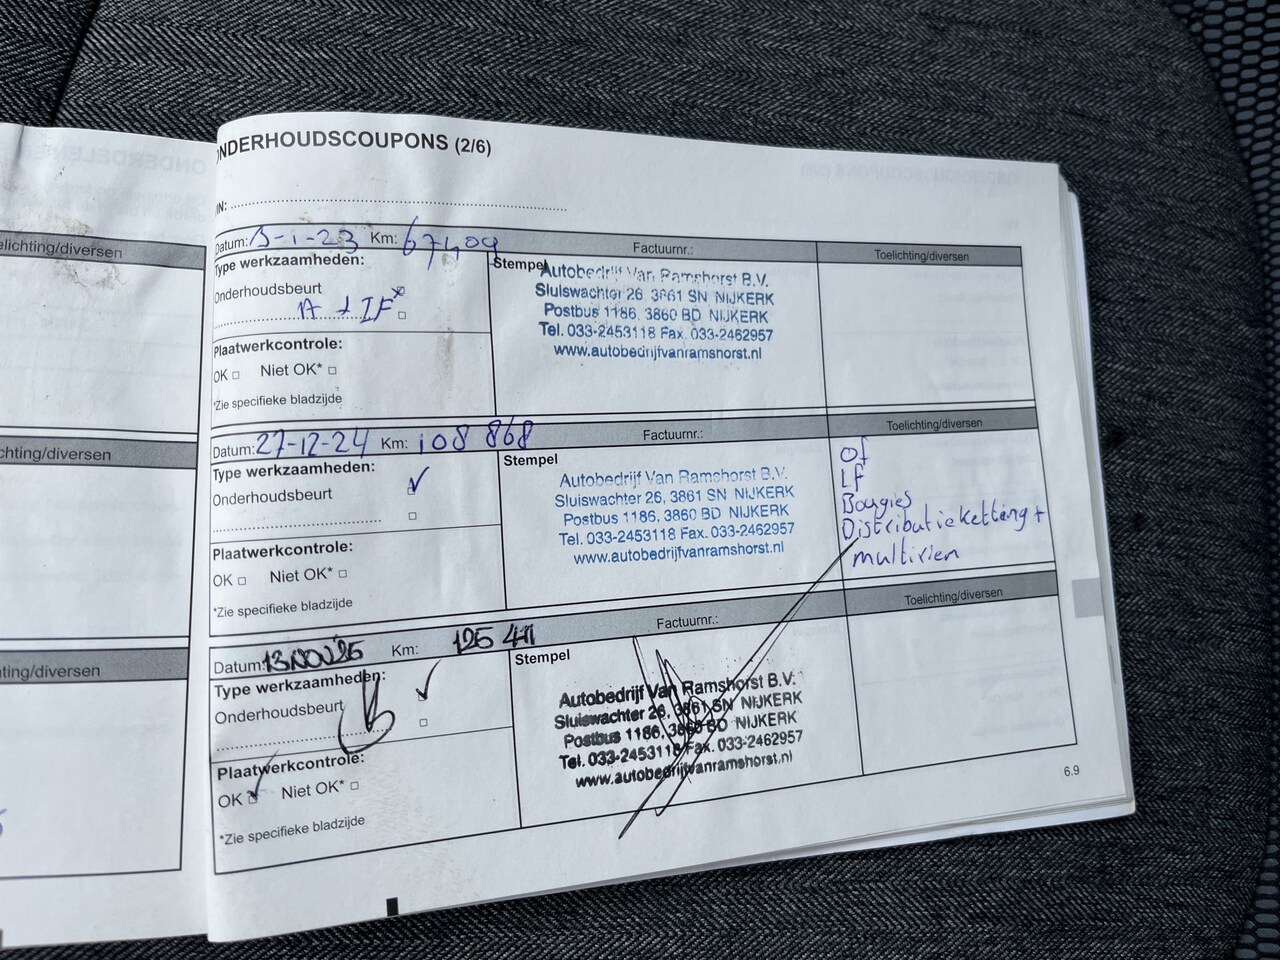 elichting/diversen
chting/diversen
ting/diversen
ONDERHOUDSCOUPONS (2/6)
IN:
Datum: 3-1-23 Km: 67409 Factuurnr.: Toelichting/diversen
Type werkzaamheden:
Onderhoudsbeurt
A + IF
Plaatwerkcontrole:
OK □ Niet OK* □
*Zie specifieke bladzijde
Stempel
Autobedrijf Van Ramshorst B.V.
Sluiswachter 26, 3861 SN NIJKERK
Postbus 1186, 3860 BD NIJKERK
Tel. 033-2453118 Fax. 033-2462957
www.autobedrijfvanramshorst.nl
Datum: 27-12-24 Km: 108 868 Factuurnr.: Toelichting/diversen
Type werkzaamheden:
Onderhoudsbeurt ✓
□
Plaatwerkcontrole:
OK □ Niet OK* □
*Zie specifieke bladzijde
Stempel
Autobedrijf Van Ramshorst B.V.
Sluiswachter 26, 3861 SN NIJKERK
Postbus 1186, 3860 BD NIJKERK
Tel. 033-2453118 Fax. 033-2462957
www.autobedrijfvanramshorst.nl
Of
LF
Bougies
Distributieketting +
multirien
Datum: 13 NOV 25 Km: 125 411 Factuurnr.: Toelichting/diversen
Type werkzaamheden:
Onderhoudsbeurt ✓
□
Plaatwerkcontrole:
OK ✓ Niet OK* □
*Zie specifieke bladzijde
Stempel
Autobedrijf Van Ramshorst B.V.
Sluiswachter 26, 3861 SN NIJKERK
Postbus 1186, 3860 BD NIJKERK
Tel. 033-2453118 Fax. 033-2462957
www.autobedrijfvanramshorst.nl
6.9